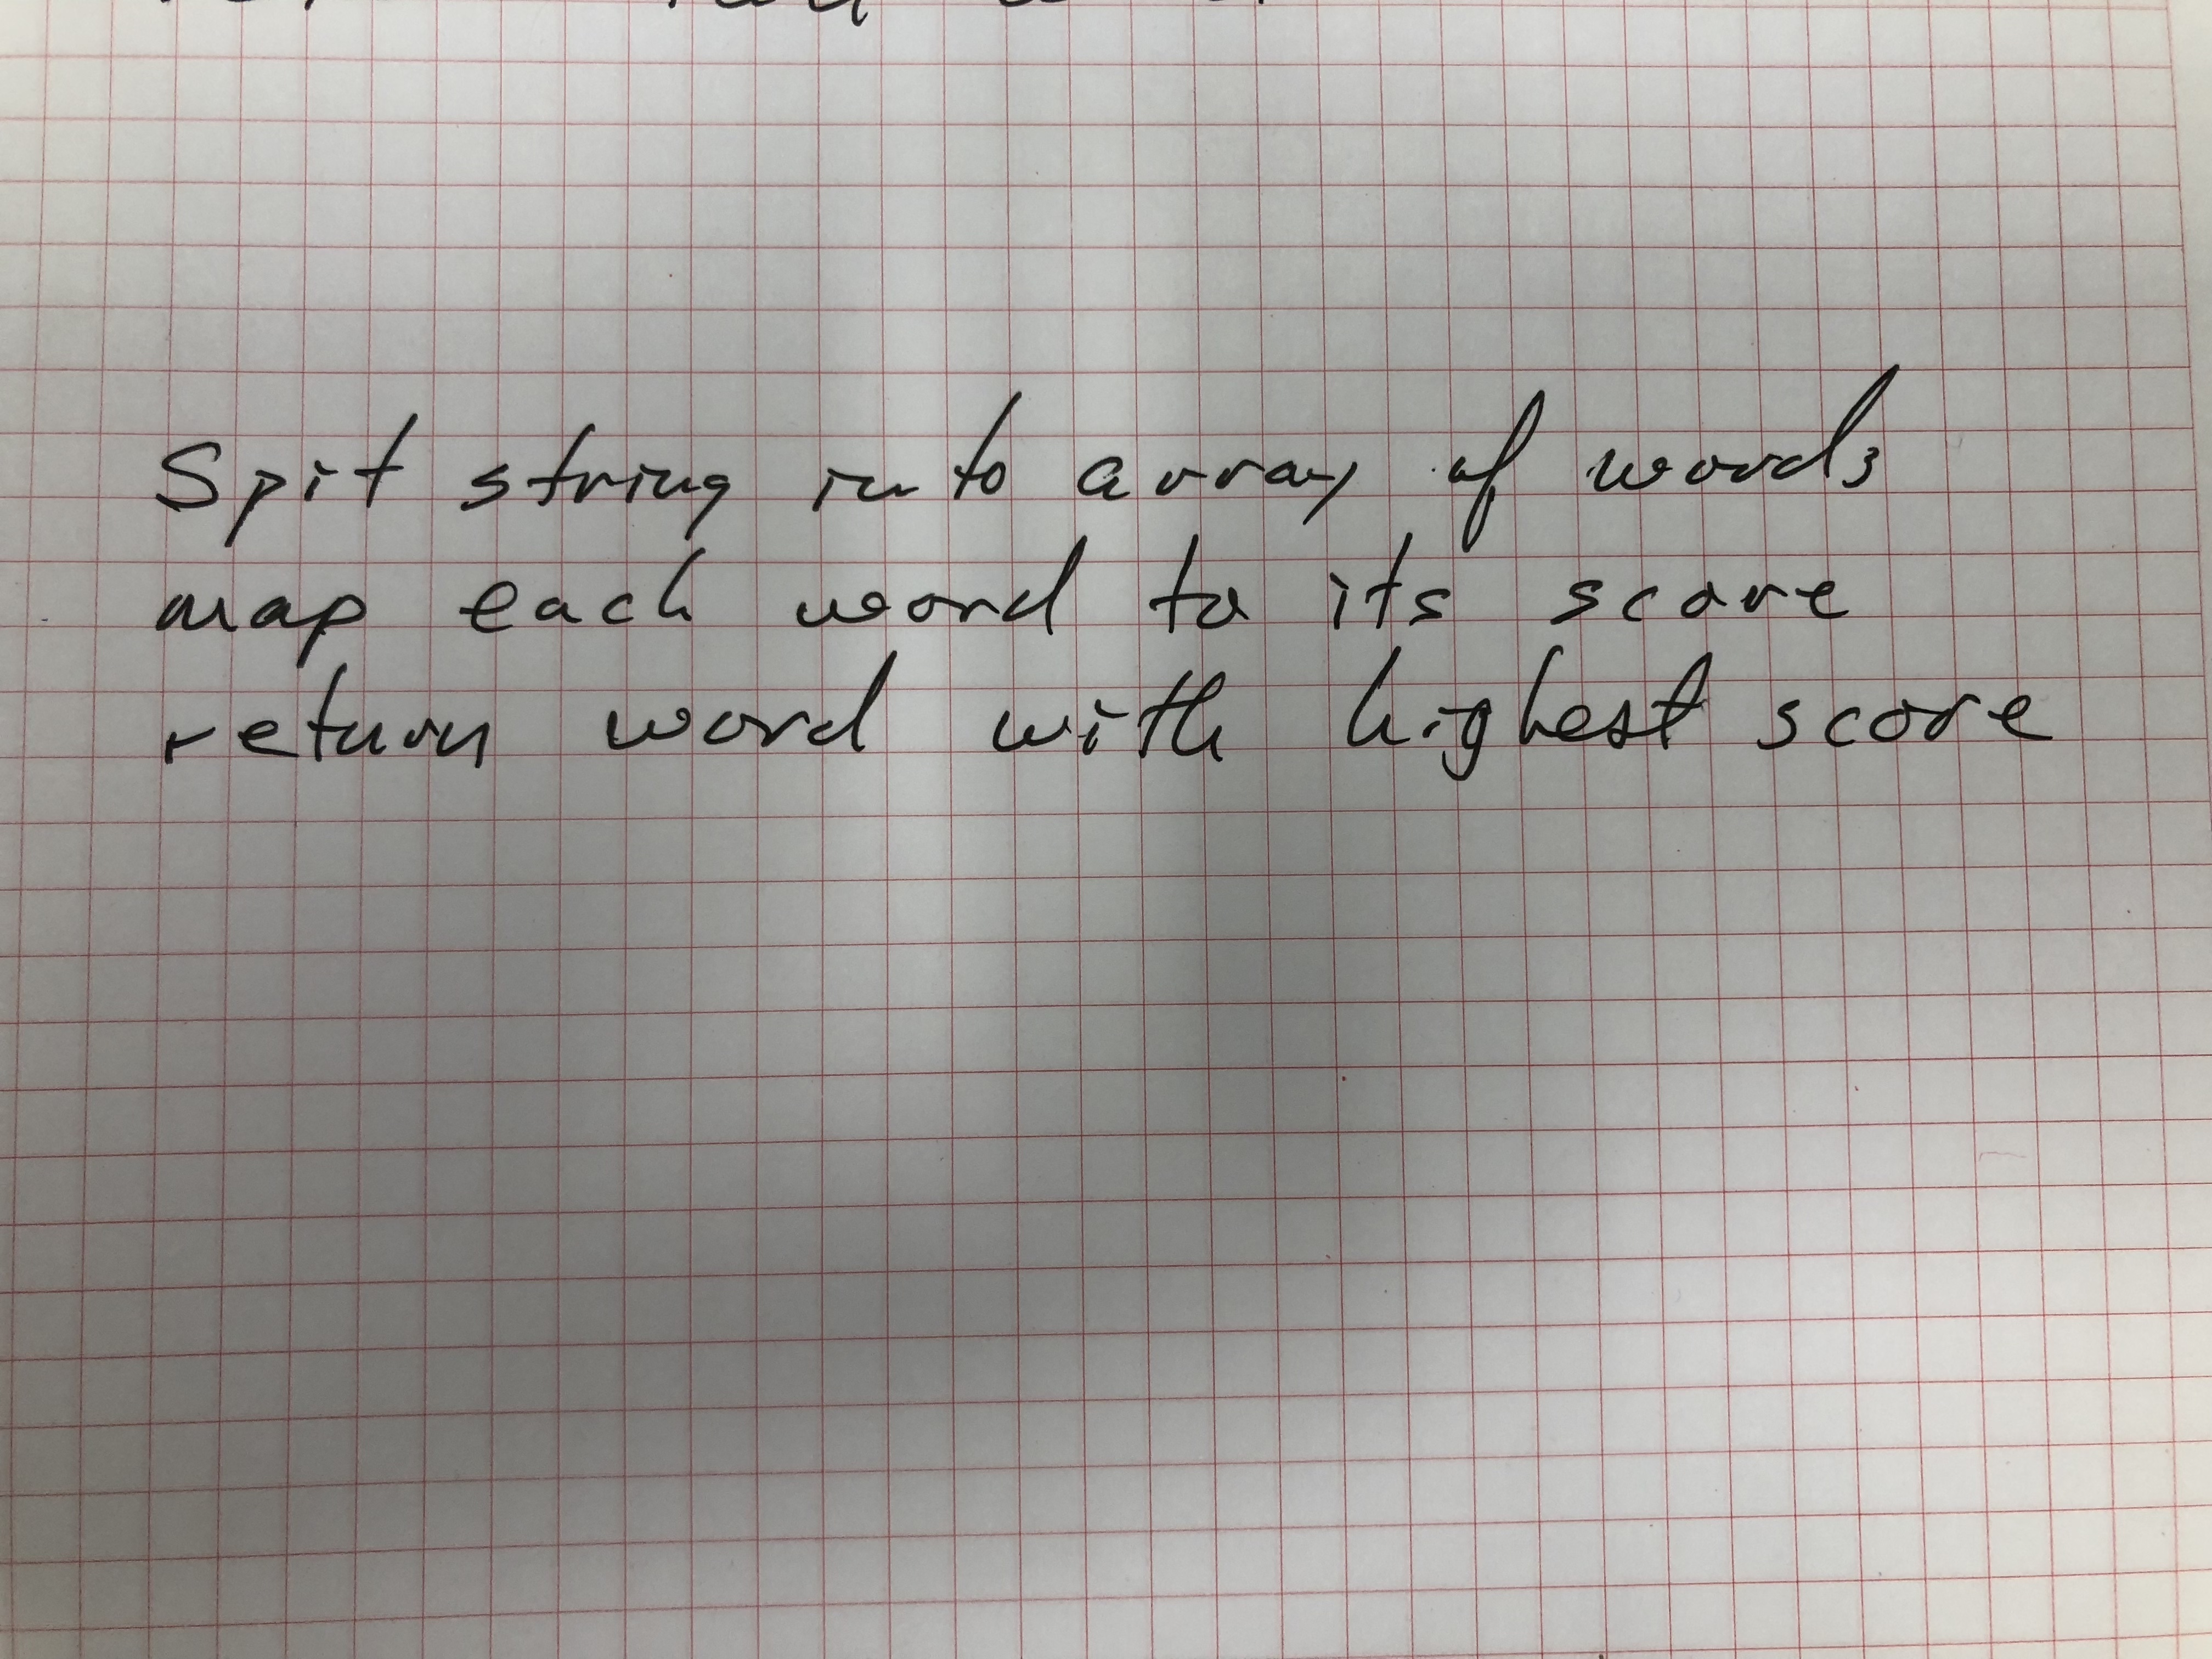 Spit string into array of words
map each word to its score
return word with highest score